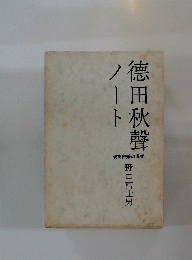 德田秋聲
ノート
野口冨士男